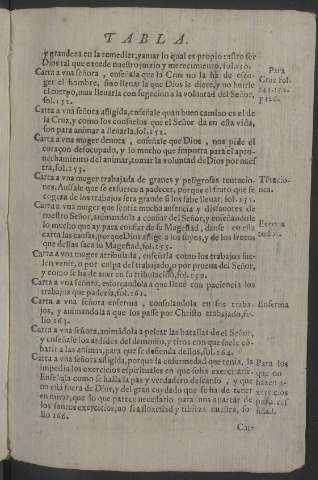 TABLA.
y grandeza en la remedier, y amar lo qual es propio rastro ser
Dios tal que excede nuestro juizio y merecimiento, fol. 150.
Carta a vna señora, enseñala que la Cruz no la ha de esco-
ger el hombre, sino lleuar la que Dios le diere, y no huirle
el cuerpo, mas lleuarla con sugecion a la voluntad del Señor,
fol. 151.
Para
Cruz fol.
Carta a vna señora afligida, enseñale quan buen camino es el de
la Cruz, y como los consuelos que el Señor da en esta vida,
son para animar a lleuarla. fol. 152.
Carta a vna muger deuota, enseñale que Dios, nos pide el
coraçon desocupado, y lo mucho que importa para el apro-
uechamiento del animar, tomar la voluntad de Dios por nues
tra, fol. 153.
Carta a vna muger trabajada de graues y peligrosas tentacio
nes. Auisale que se esfuerce a padecer, porque el fruto que se
cogerà de los trabajos sera grande si los sabe lleuar. fol. 151.
Tẽtacio-
nes.
Carta a vna muger que sentia mucho ausencia y disfauores de
nuestro Señor, animandola a confiar del Señor, y enseñandole
lo mucho que ay para confiar de su Magestad, danse en esta
carta las causas, porque Dios aflige a los suyos, y de los frutos
que dellas saca su Magestad, fol. 155.
Carta a vna muger atribulada, enseñala como los trabajos sue-
len venir, o por culpa del trabajado, o por prueua del Señor,
y como se ha de auer en su tribulacion, fol. 159.
Carta a vna señora, esforçandola a que lleue con paciencia los
trabajos que padecia, fol. 161.
Carta a vna señora enferma, consolandola en sus traba-
jos, y animandola a que los passe por Christo atrabajado, fo-
lio 163.
Enferma
Carta a vna señora, animãdola a pelear las batallas de el Señor,
y enseñale los ardides del demonio, y tiros con que suele cõ-
batir a las animas, para que se defienda dellos, fol. 164.
Carta a vna señora afligida, porque la enfermedad que tenia, la
impedia los exercicios espirituales en que solia exercitarse.
Enseñala como se halla la paz y verdadero descanso, y que
no està fuera de Dios, y del gran cuydado que se ha de tener
en mirar, que lo que parece necessario para nos apartar de
los santos exercicios, no sea floxedad y tibieza nuestra, fo
lio 166.
Para los
que no
hazen
exercicios
Car-